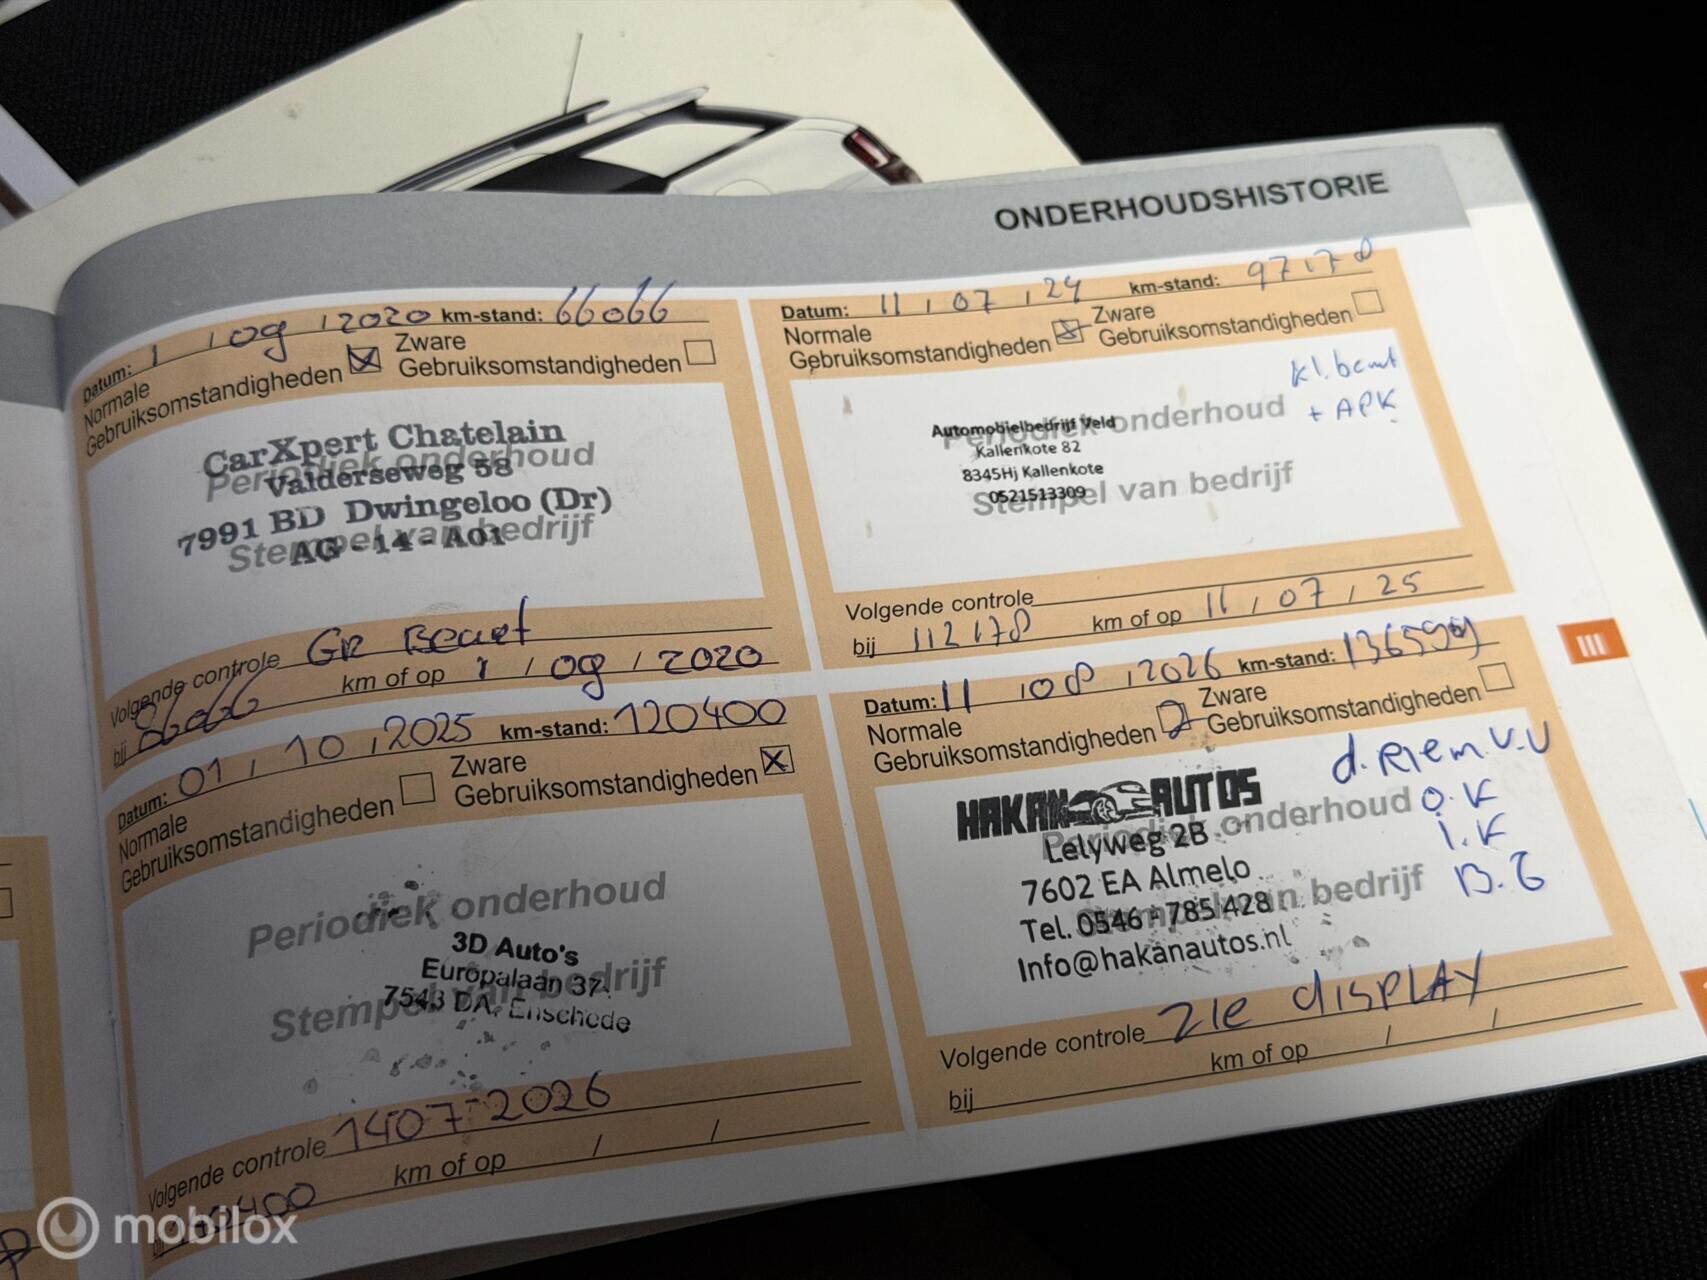 ONDERHOUDSHISTORIE
Datum: 1 / 09 / 2020 km-stand: 66066
Normale Gebruiksomstandigheden
Zware Gebruiksomstandigheden
CarXpert Chatelain
Periodiek onderhoud
Valderseweg 58
7991 BD Dwingeloo (Dr)
Stempel van bedrijf
AG - 14 - A01
Volgende controle Gr Beurt
bij 86066 km of op 1 / 09 / 2020
Datum: 11 / 07 / 24 km-stand: 97178
Normale Gebruiksomstandigheden
Zware Gebruiksomstandigheden
kl. beurt
+ APK
Automobielbedrijf Veld
Periodiek onderhoud
Kallenkote 82
8345Hj Kallenkote
0521513309
Stempel van bedrijf
Volgende controle
bij 112178 km of op 11 / 07 / 25
Datum: 01 / 10 / 2025 km-stand: 120400
Normale Gebruiksomstandigheden
Zware Gebruiksomstandigheden
Periodiek onderhoud
3D Auto's
Europalaan 37
Stempel van bedrijf
7543 DA, Enschede
Volgende controle 1407-2026
bij km of op / /
Datum: 11 / 08 / 2026 km-stand:
Normale Gebruiksomstandigheden
Zware Gebruiksomstandigheden
d. Riem. V.V
O.K
I.K
B.G
HAKAN AUTOS
Periodiek onderhoud
Lelyweg 2B
7602 EA Almelo
Stempel van bedrijf
Tel. 0546 - 785 428
Info@hakanautos.nl
Volgende controle zie display
bij km of op / /
III
mobilox